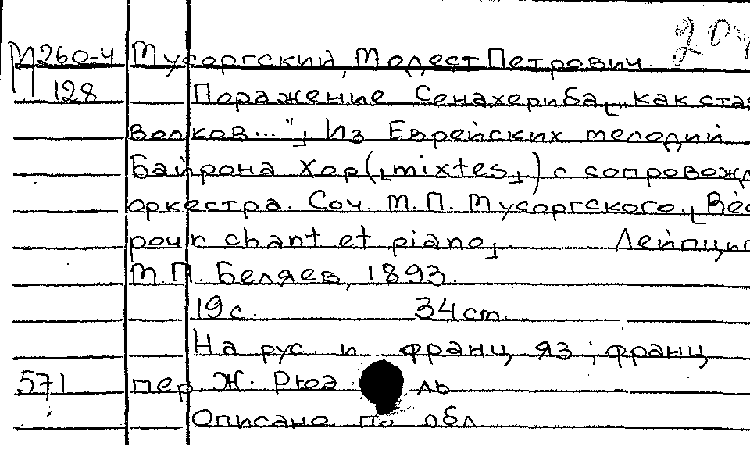 М260-4 Мусоргский, Модест Петрович 204
128 Поражение Сенахериба [„как стая
волков..."] Из Еврейских мелодий
Байрона Хор ([mixtes]) с сопровожд
оркестра. Соч. М.П. Мусоргского. [Réd
pour chant et piano]. Лейпциг
М.П. Беляев, 1893.
19 с. 34 cm.
На рус и франц яз; франц
571 пер Ж. Рюэ ль
Описано по обл